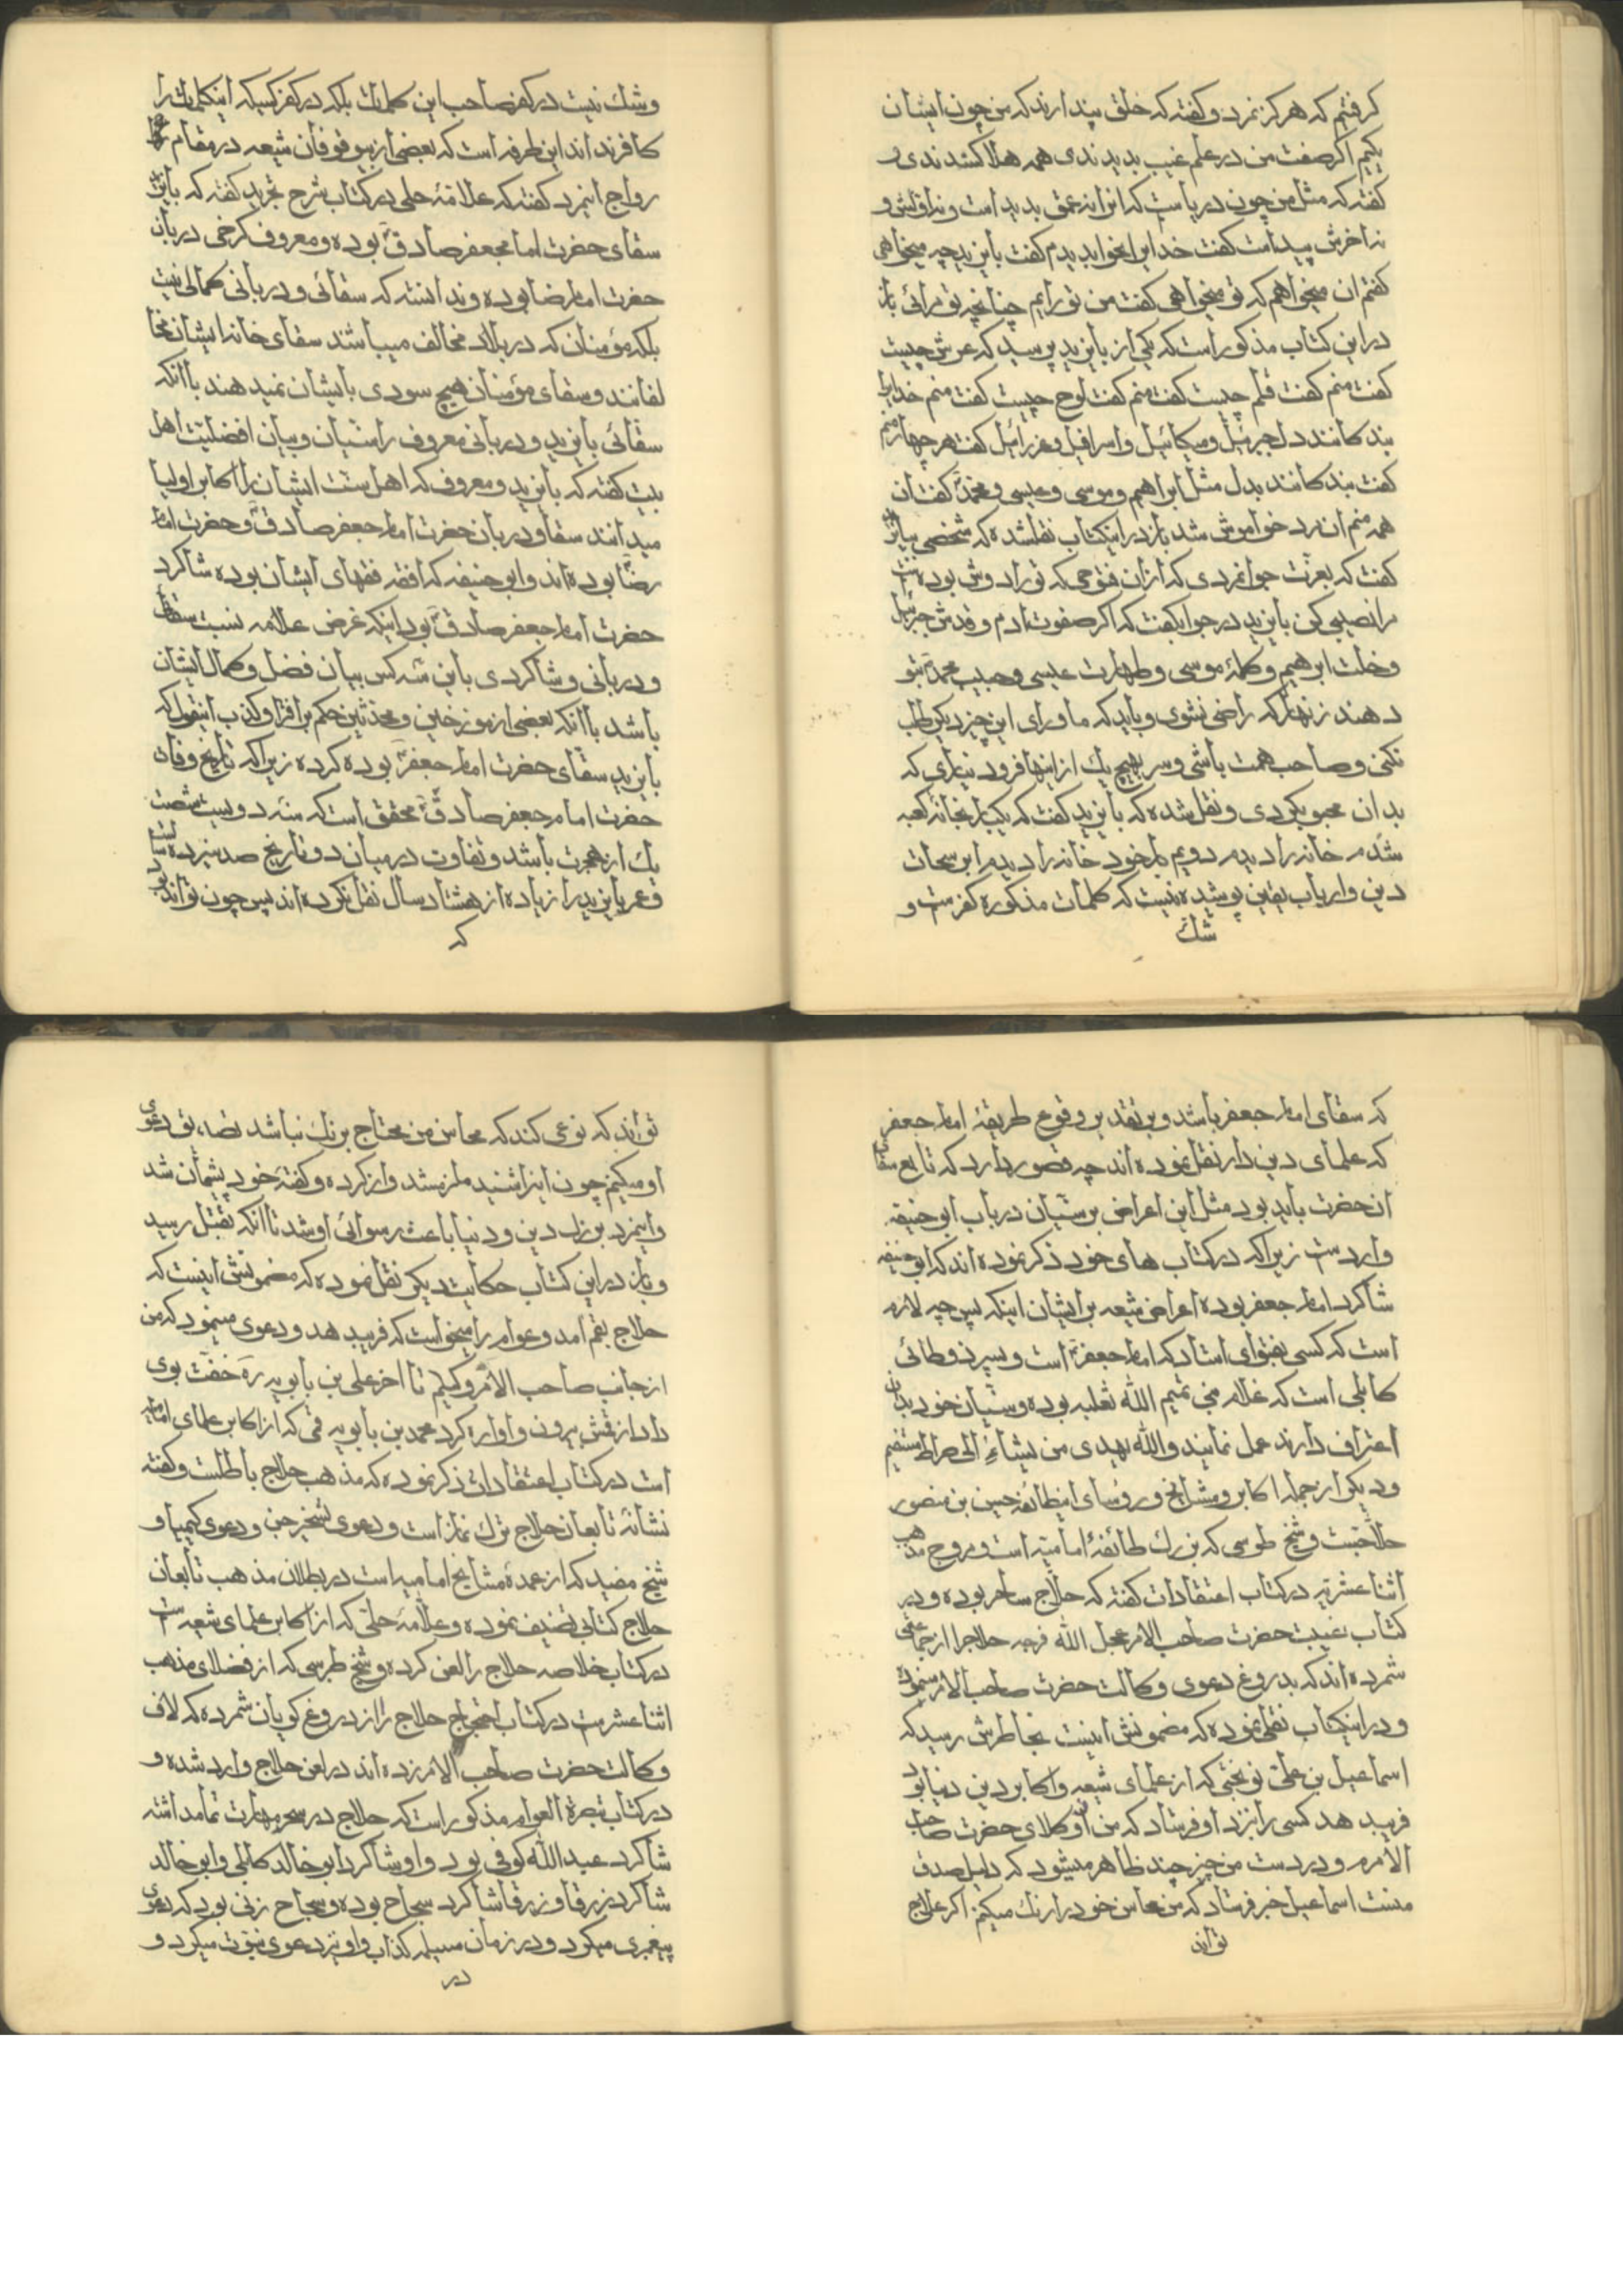 کرفتیم که هرکز نمرد وکفته که خلق پندارند که من چون ایشان
یکیم اکر صفت من در علم غیب بدیدندی همه هلاک شدندی و
کفته که مثل من چون دریاست که انرا نه عمق بدید است ونه اولش و
نه اخرش پیداست کفت خدایرا بخواب دیدم کفت بایزید چه میخواهی
کفتم ان میخواهم که تو میخواهی کفت من تورایم چنانچه تو مرائی باز
در این کتاب مذکور است که یکی از بایزید پرسید که عرش چیست
کفت منم کفت قلم چیست کفت منم کفت لوح چیست کفت منم خدایرا
بندکانند بدل جبرئیل ومیکائیل واسرافیل وعزرائیل کفت هر چهار منم
کفت بندکانند بدل مثل ابراهیم وموسی وعیسی ومحمد کفت ان
همه منم ان مرد خواموش شد باز در اینکتاب نقلشده که شخصی ببایزید
کفت که بعزت جوانمردی که ازان فتوحی که تورا دوش بوده است
مرا نصیبی کن بایزید در جوابکفت که اکر صفوت ادم وقدس جبرئیل
وخلت ابرهیم وکلمهٔ موسی وطهارت عیسی وحبیب محمد بتو
دهند زنهار که راضی نشوی وباید که ماورای این چیز دیکر طلب
نکنی وصاحب همت باشی وسر بهیچ یک از اینها فرود نیاری که
بدان محبوبکردی ونقل شده که بایزید کفت که یکبار بخانهٔ کعبه
شدم خانه را دیدم دویم بار خود خانه را دیدم ابر سحاب
دین وارباب یقین پوشیده نیست که کلمات مذکوره کفرست و
شک
وشک نیست در کفر صاحب این کلمات بلکه در کفر کسیکه اینکلمات را
کافر نداند این طرفه است که بعضی از بیوقوفان شیعه در مقام
رواج اینمرد کفته که علامهٔ حلی در کتاب شرح تجرید کفته که بایزید
سقای حضرت امام جعفر صادق بوده ومعروف کرخی دربان
حضرت امام رضا بوده وندانسته که سقائی ودربانی کمالی نیست
بلکه مؤمنان که در بلاد مخالف میباشند سقای خانه ایشان مخا
لفانند وسقای مؤمنان هیچ سودی بایشان نمیدهند باانکه
سقائی بایزید ودربانی معروف را سنیان وبیان افضلیت اهل
بیت کفته که بایزید ومعروف که اهل سنت ایشان را اکابر اولیا
میدانند سقا ودربان حضرت امام جعفر صادق وحضرت امام
رضا بوده اند وابو حنیفه که افقه فقهای ایشان بوده شاکرد
حضرت امام جعفر صادق بود اینکه غرض علامه نسبت سقائی
ودربانی وشاکردی باین سه کس بیان فضل وکمال ایشان
باشد باانکه بعضی از مورخین ومحدثین حکم بر افترا وکذب اینقول که
بایزید سقای حضرت امام جعفر بوده کرده زیراکه تاریخ وفات
حضرت امام جعفر صادق محقق است که سنه دویست شصت
یک از هجرت باشد وتفاوت در میان دو تاریخ صد سیزده سال است
وعمر بایزید را زیاده از هشتاد سال نقل نکرده اند پس چون تواند بود
که
که سقای امام جعفر باشد وبر تقدیر وقوع طریقهٔ امام جعفر
که علمای دین دار نقل نموده اند چه قصور دارد که تابع سقای
ان حضرت باید بود مثل این اعراض بر سنیان در باب ابو حنیفه
واردست زیراکه در کتاب های خود ذکر نموده اند که ابو حنیفه
شاکرد امام جعفر بوده اعراض شیعه بر ایشان اینکه پس چه لازم
است که کسی بفتوای استاد که امام جعفر است وسپرز وطائی
کابلی است که غلام منی تمیم الله ثعلبه بوده وسنیان خود بدان
اعتراف دارند عمل نمایند والله یهدی من یشاء الی صراط مستقیم
ودیکر از جمله اکابر ومشایخ ورؤسای اینطائفه حسین بن منصور
حلاجست وشیخ طوسی که بزرک طائفهٔ امامیه است ومروج مذهب
اثنا عشریه در کتاب اعتقادات کفته که حلاج ساحر بوده ودر
کتاب غیبت حضرت صاحب الامر عجل الله فرجه حلاجرا از جماعتی
شمرده اند که بدروغ دعوی وکالت حضرت صاحب الامر مینمود
ودر اینکتاب نقل نموده که مضمونش اینست بخاطرش رسید که
اسماعیل بن علی نوبختی که از علمای شیعه واکابر دین دنیا بود
فریبدهد کسی را نزد او فرستاد که من از وکلای حضرت صاحب
الامرم ودر دست من چیز چند ظاهر میشود که دلیل صدق
منست اسماعیل خبر فرستاد که من محاسن خود را رنک میکنم اکر حلاج
تواند
تواند که نوعی کند که محاسن من محتاج برنک نباشد تصدیق دعوی
او میکنم چون اینرا شنید ملزم شد واز کرده وکفته خود پشمان شد
واینمرد بزرک دین ودنیا باعث رسوائی او شد تاانکه بقتل رسید
وباز در این کتاب حکایت دیکر نقل نموده که مضمونش اینست که
حلاج بقم امد وعوام را میخواست که فریبدهد ودعوی مینمود که من
از جانب صاحب الامر وکیلم تا اخر علی بن بابویه ره خفت بوی
داد از قمش بیرون واواره کرد محمد بن بابویه قمی که از اکابر علمای امامیه
است در کتاب اعتقادات ذکر نموده که مذهب حلاج باطلست وکفته
نشانهٔ تابعان حلاج ترک نماز است ودعوی تسخیر جن ودعوی کیمیا و
شیخ مفید که از عمدهٔ مشایخ امامیه است در بطلان مذهب تابعان
حلاج کتابی تصنیف نموده وعلامهٔ حلی که از اکابر علمای شیعه است
در کتاب خلاصه حلاج را لعن کرده وشیخ طبرسی که از فضلای مذهب
اثنا عشرست در کتاب احتجاج حلاج را از دروغ کویان شمرده که لاف
وکالت حضرت صاحب الامر زده اند در لعن حلاج وارد شده و
در کتاب تبصرة العوام مذکور است که حلاج در سحر مهارت تمام داشته
شاکرد عبدالله کوفی بود واو شاکرد ابو خالد کابلی وابو خالد
شاکرد زرقا وزرقا شاکرد سجاح بوده وسجاح زنی بود که دعوی
پیغمبری میکرد ودر زمان مسیلمه کذاب واو نیز دعوی نبوت میکرد و
در